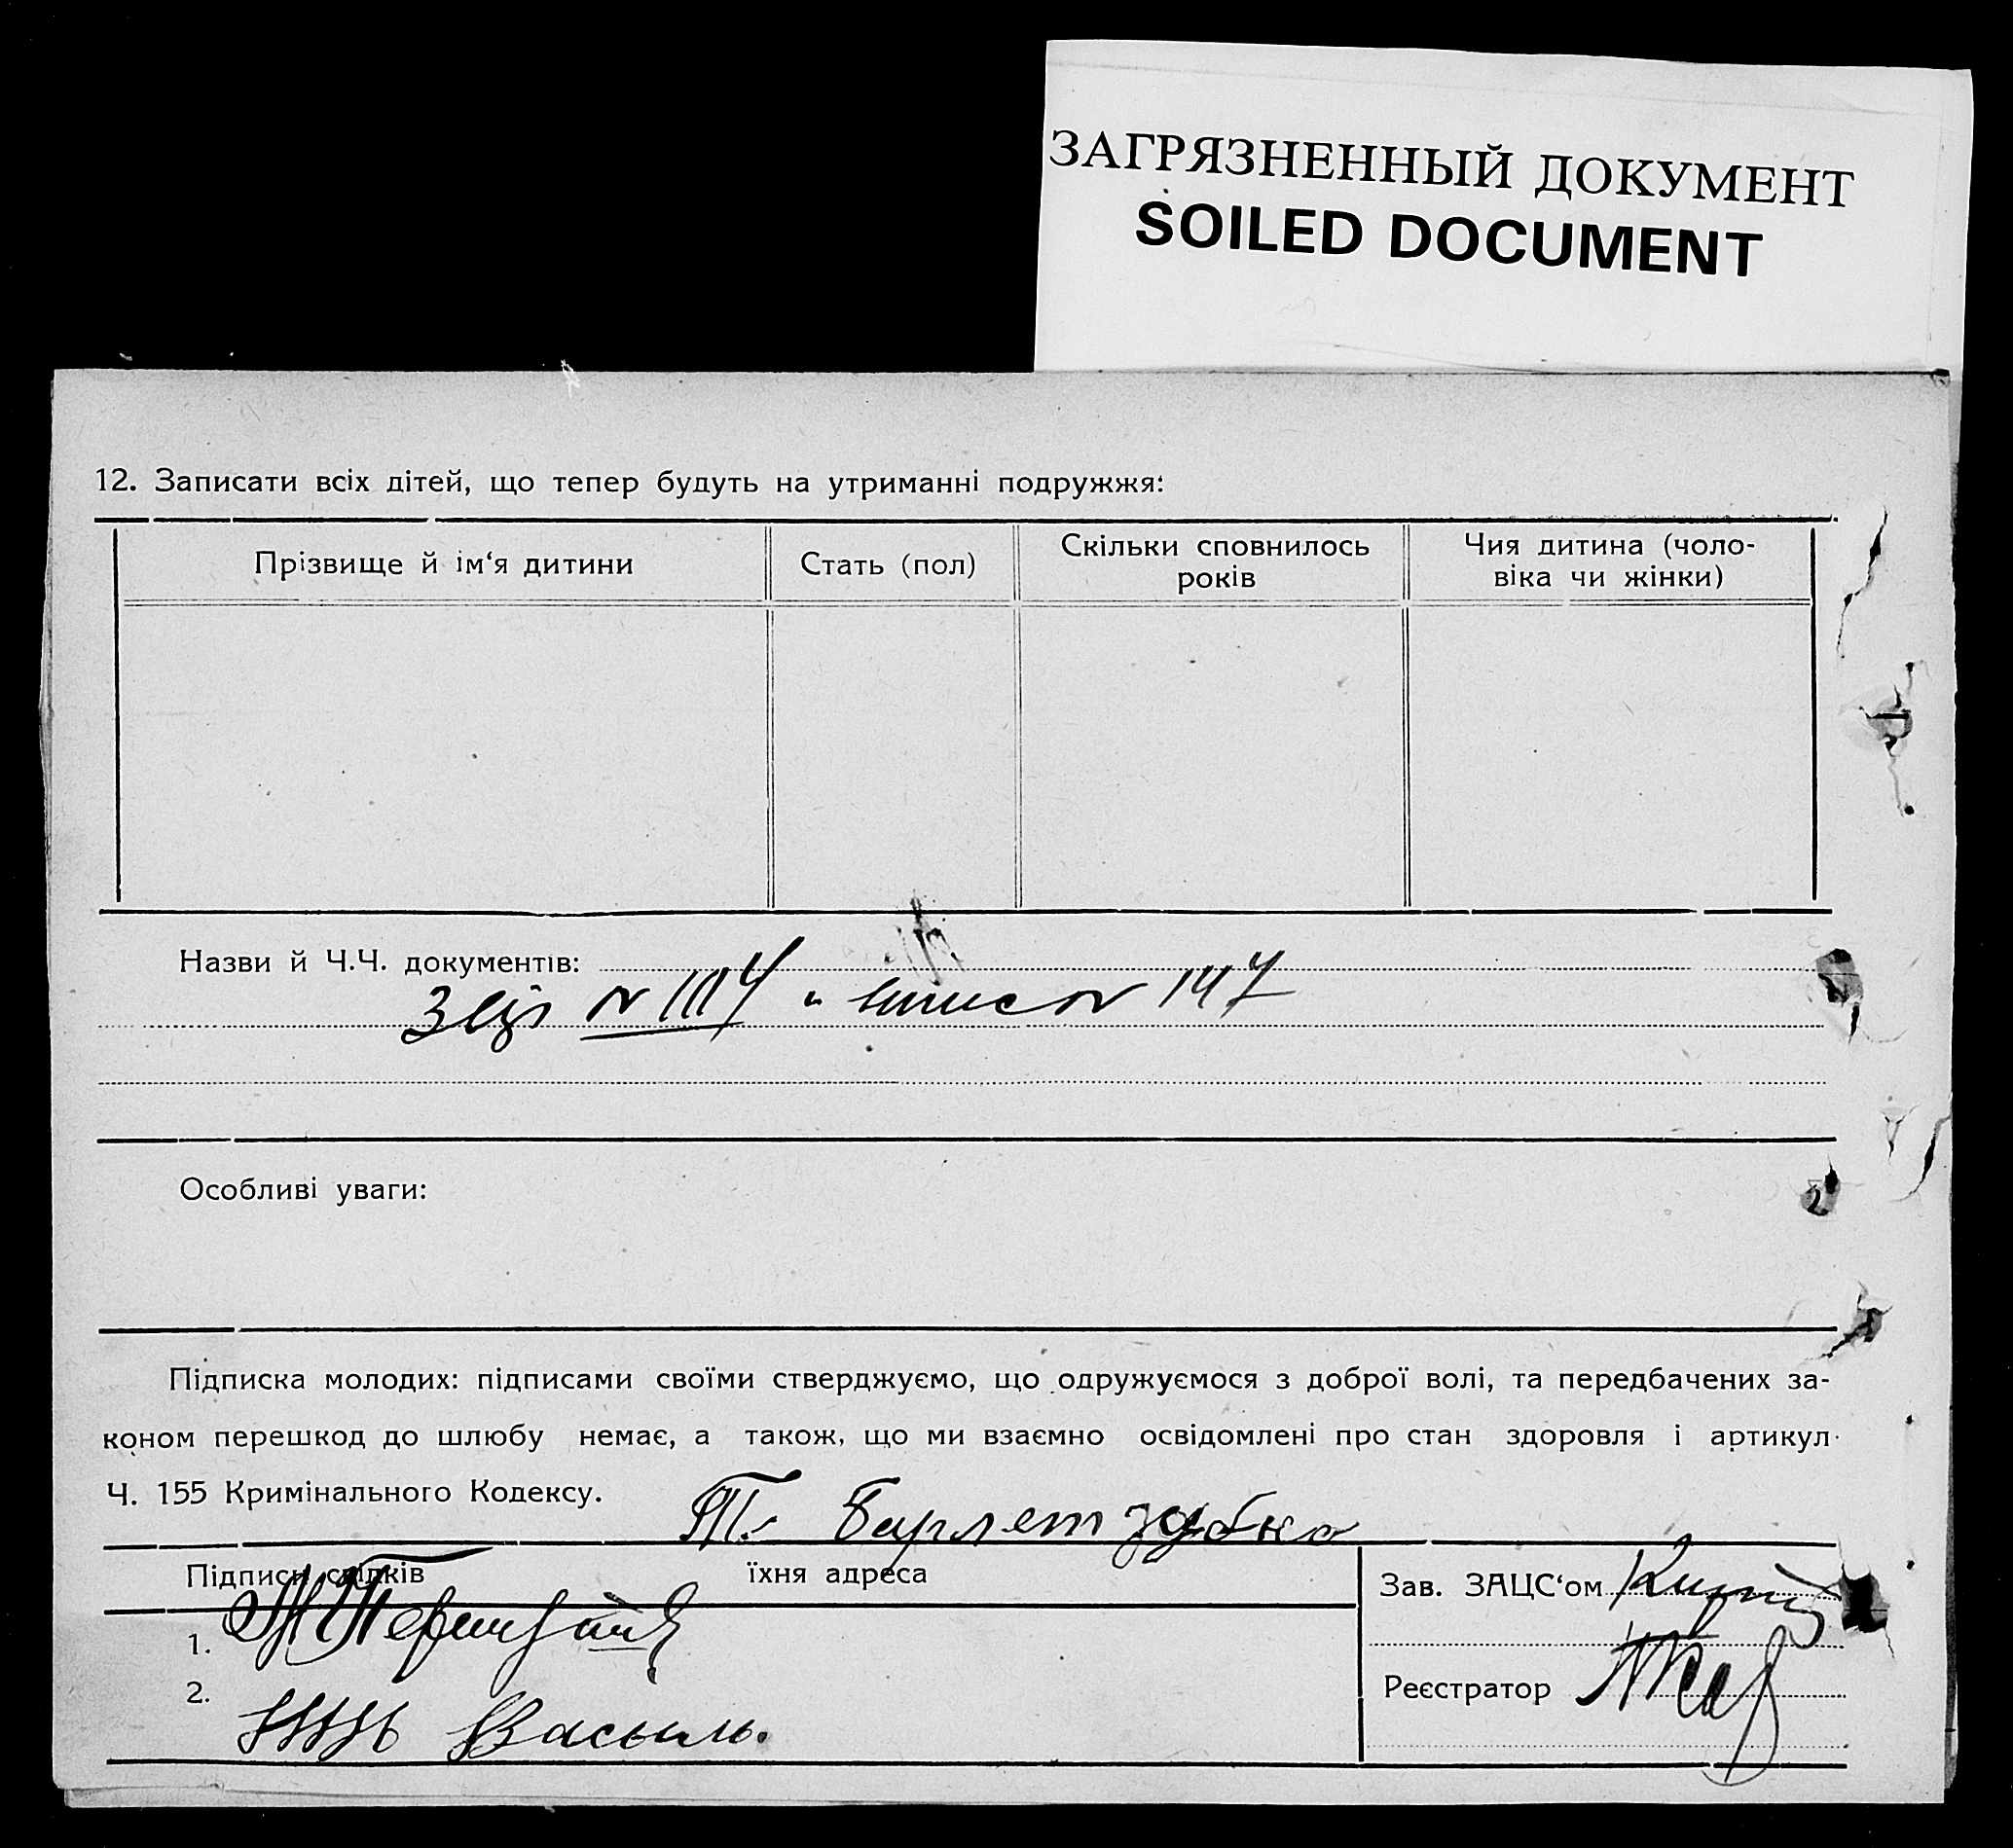 ЗАГРЯЗНЕННЫЙ ДОКУМЕНТ
SOILED DOCUMENT
12. Записати всіх дітей, що тепер будуть на утриманні подружжя:
Прізвище й ім‘я дитини
Стать (пол)
Скільки сповнилось
років
Чия дитина (чоло-
віка чи жінки)
Назви й Ч.Ч. документів:
147
Особливі уваги:
Підписка молодих: підписами своїми стверджуємо, що одружуємося з доброї волі, та передбачених за-
коном перешкод до шлюбу немає, а також, що ми взаємно освідомлені про стан здоровля і артикул
Ч. 155 Кримінального Кодексу.
Підписи свідків
їхня адреса
Зав. ЗАЦС‘ом
1.
Реєстратор
2.
Василь.